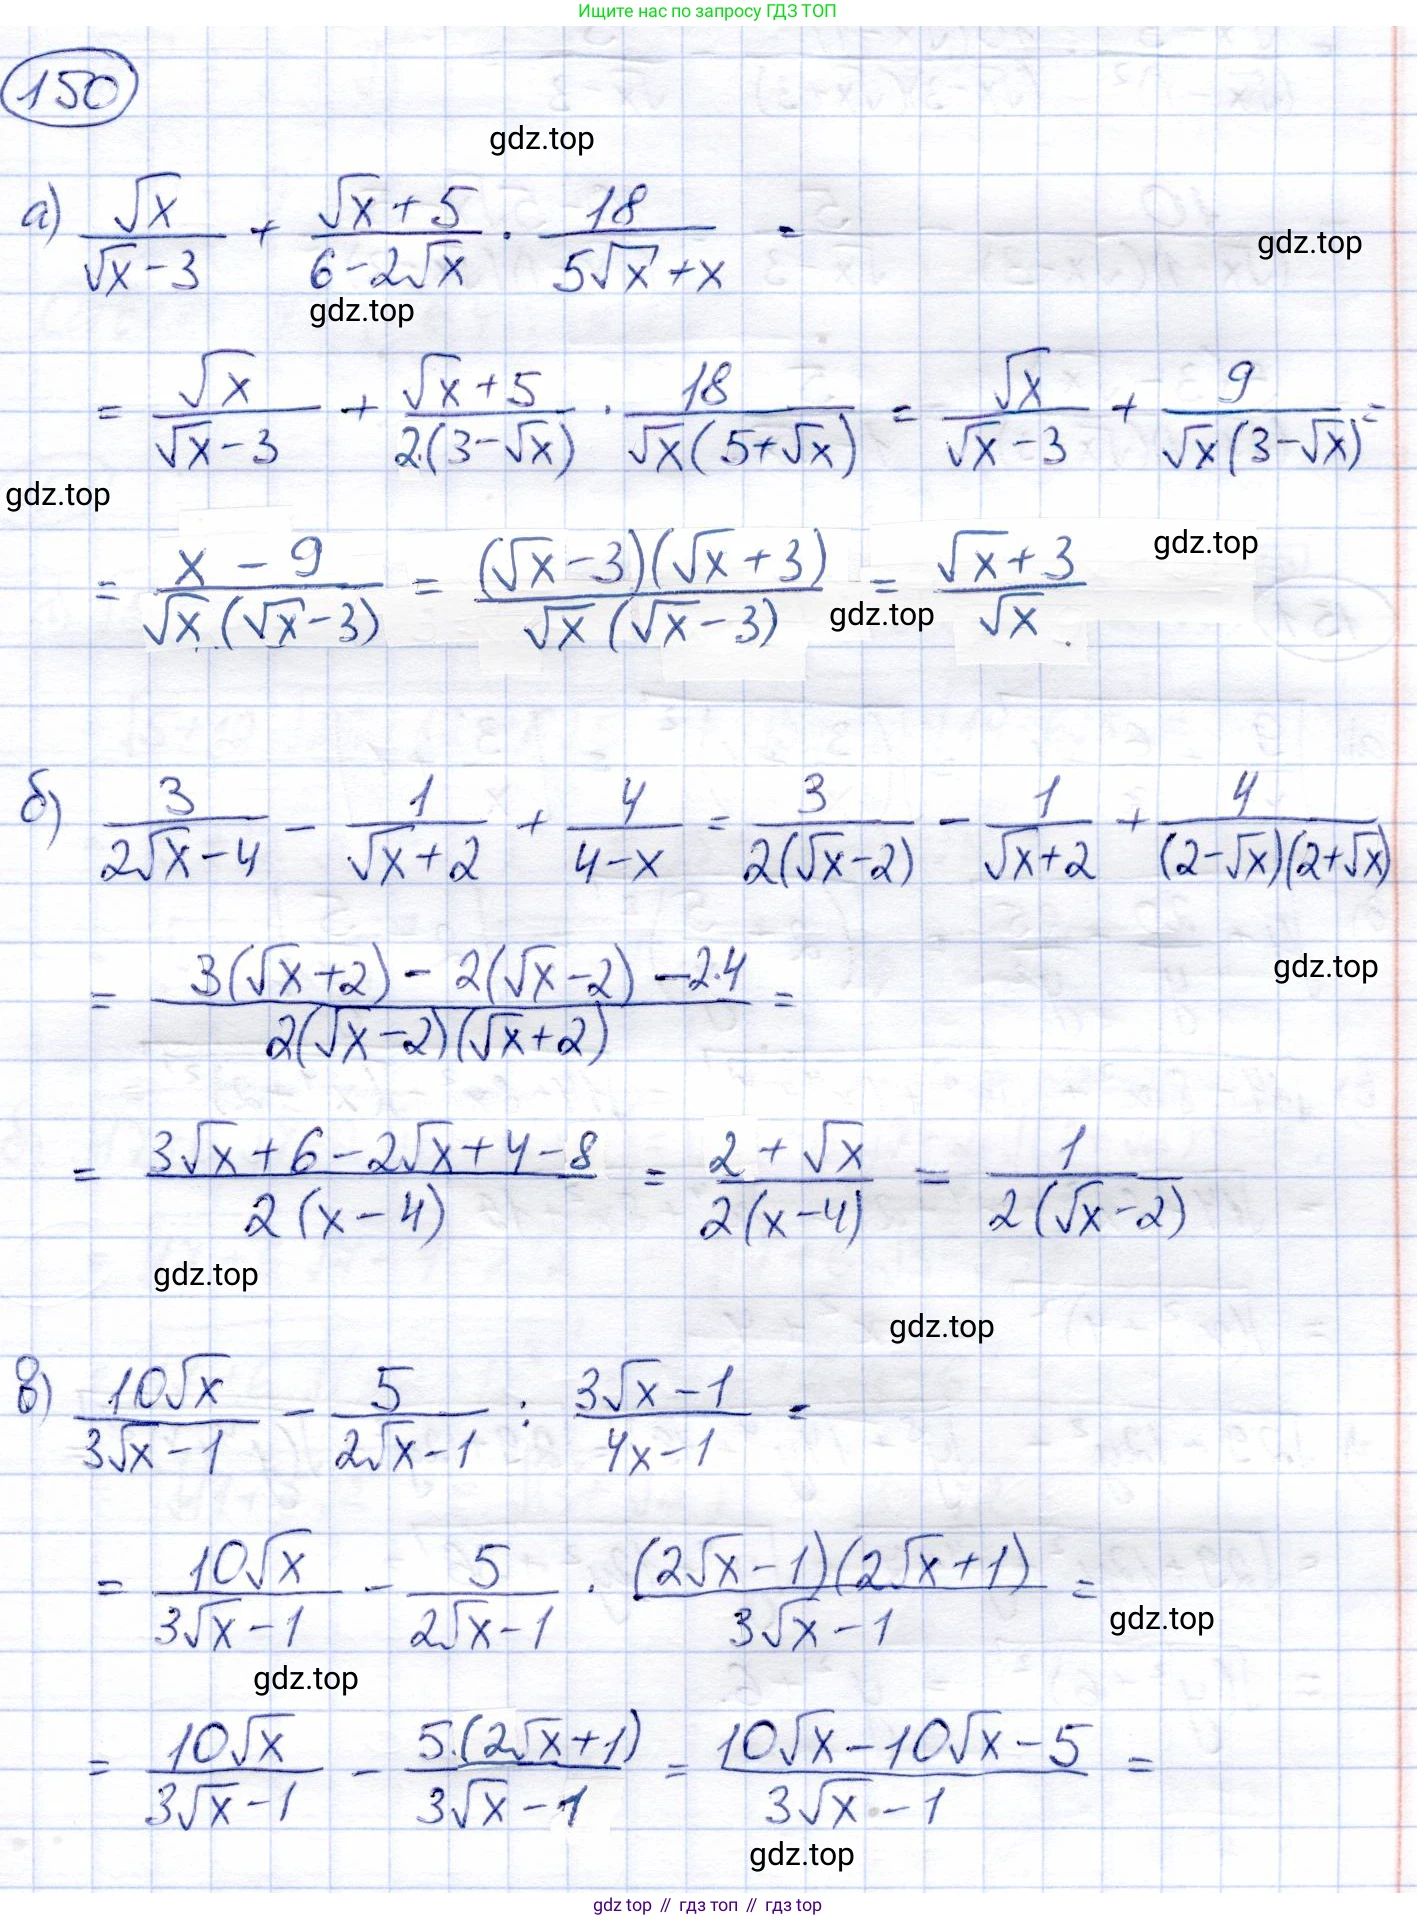 Ищите нас по запросу ГДЗ ТОП
150
gdz.top
а) √x/(√x-3) + (√x+5)/(6-2√x) · 18/(5√x+x) =
gdz.top
gdz.top
= √x/(√x-3) + (√x+5)/(2·(3-√x)) · 18/(√x(5+√x)) = √x/(√x-3) + 9/(√x(3-√x)) =
gdz.top
= (x-9)/(√x(√x-3)) = ((√x-3)(√x+3))/(√x(√x-3)) = (√x+3)/√x.
gdz.top
gdz.top
б) 3/(2√x-4) - 1/(√x+2) + 4/(4-x) = 3/(2(√x-2)) - 1/(√x+2) + 4/((2-√x)(2+√x))
= (3(√x+2) - 2(√x-2) - 2·4)/(2(√x-2)(√x+2)) =
gdz.top
= (3√x+6-2√x+4-8)/(2(x-4)) = (2+√x)/(2(x-4)) = 1/(2(√x-2))
gdz.top
gdz.top
в) 10√x/(3√x-1) - 5/(2√x-1) : (3√x-1)/(4x-1) =
= 10√x/(3√x-1) - 5/(2√x-1) · ((2√x-1)(2√x+1))/(3√x-1) =
gdz.top
gdz.top
= 10√x/(3√x-1) - (5·(2√x+1))/(3√x-1) = (10√x-10√x-5)/(3√x-1) =
gdz.top
gdz top // гдз топ // gdz top